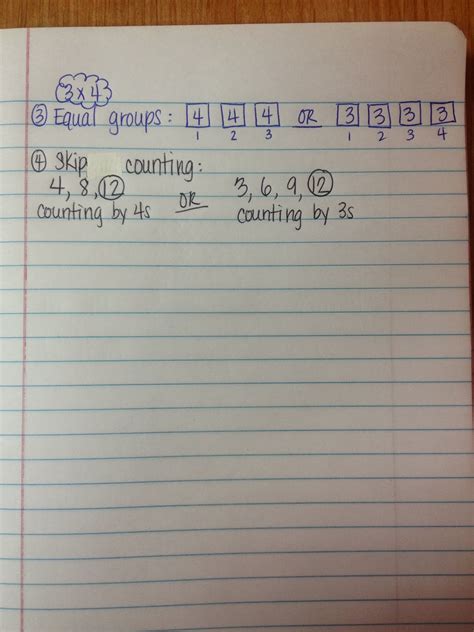 3 x 4
③ Equal groups: 4 4 4 OR 3 3 3 3
1 2 3 1 2 3 4
④ Skip counting:
4, 8, 12 OR 3, 6, 9, 12
counting by 4s counting by 3s